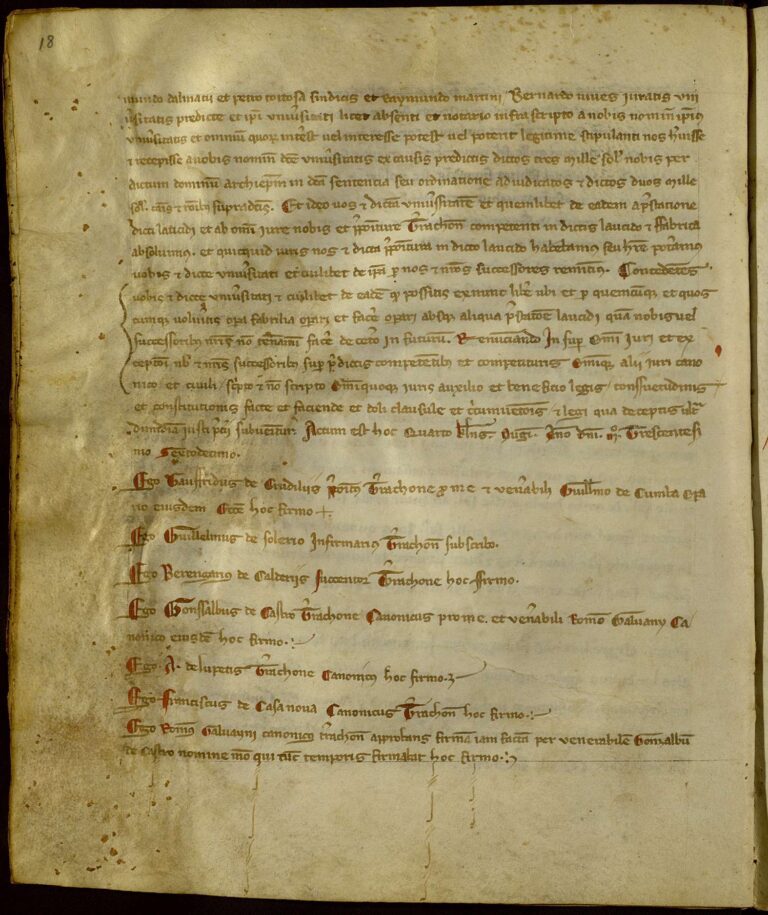 18
mundo dalmacii et petro tortosa sindicis et Raymundo martini Bernardo vives iuratis uni
versitatis predicte et ipi universitati licet absenti et notario infrascripto a nobis nomine ipius
universitatis et omnium quorum interest vel interesse potest vel poterit legitime stipulanti nos huisse
et recepisse a vobis nomine dce universitatis ex causis predictis dictos tres mille sol nobis per
dictum dominum archiepm in dca sentencia seu ordinatione adiudicatos et dictos duos mille
sol supradictis. Et ideo vos et dictam universitatem et quemlibet de eadem a prestatione
dicti laucidi et ab omni iure nobis et ppositure Trachon competenti in dictis laucido et fabrica
absolvimus. et quicquid iuris nos et dicta ppositura in dicto laucido habebamus seu hre poteramus
vobis et dicte universitati et cuilibet de ipa p nos et nros successores remitimus. Concedentes
vobis et dicte universitati et cuilibet de eadem q possitis ex nunc libe ubi et p quemcumq et quos
cumque volueritis opera fabrilia operari et facere operari absq aliqua prestatione laucidi qua nobis vel
successoribus nris no teneamini facere de cetero in futurum. Renunciando In sup omni iuri et ex
ceptioni nob et nris successoribus sup pdictis competentibus et competituris Omniq alii iuri cano
nico et civili scripto et no scripto Omniquoque iuris auxilio et beneficio legis consuetudinis
et constitutionis facte et faciende et doli clausule et et legi qua deceptis ultra
dimidiam iusti precii subvenitur. Actum est hoc Quarto klns Augi. Anno dni. mo. Trescentesi
mo Sextodecimo.
Ego Gauffridus de Crudiliis ppoitus Trachone p me et venerabili Guillmo de Cumba Ope
rario eiusdem Ecce hoc firmo +
Ego Guillelmus de solerio Infirmarius Trachon subscribo.
Ego Berengarius de Calderiis Succentor Trachone hoc firmo.
Ego Gonssalbus de Castro Trachone Canonicus pro me. et venerabili Romeo Galvany Ca
nonico eiusde hoc firmo.
Ego A. de lupetis Trachone Canonicus hoc firmo.
Ego Franciscus de Casanova Canonicus Trachon hoc firmo.
Ego Romeus Galvanyi canonicus trachon approbans firmam iam factam per venerabilem Gonzalbum
de Castro nomine meo qui tunc temporis firmabat hoc firmo.